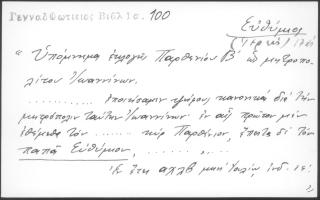 Γενναδ. Φωτίειος Βιβλ 1 σ. 100
Εὐθύμιος
(Ἱερεύς) 1732
"Ὑπόμνημα ἐκλογῆς Παρθενίου Β' ὡς μητροπο-
λίτου Ἰωαννίνων.
............ ἐποιήσαμεν ψήφους κανονικὰς διὰ τὴν
μητρόπολιν ταύτην Ἰωαννίνων ἐν αἷς πρῶτον μὲν
ἐθέμεθα τὸν ...... κὺρ Παρθένιον, ἔπειτα δὲ τὸν
παπᾶ Εὐθύμιον, ........
Ἐν ἔτει αψλβ μηνὶ ἰνδ. ιε.